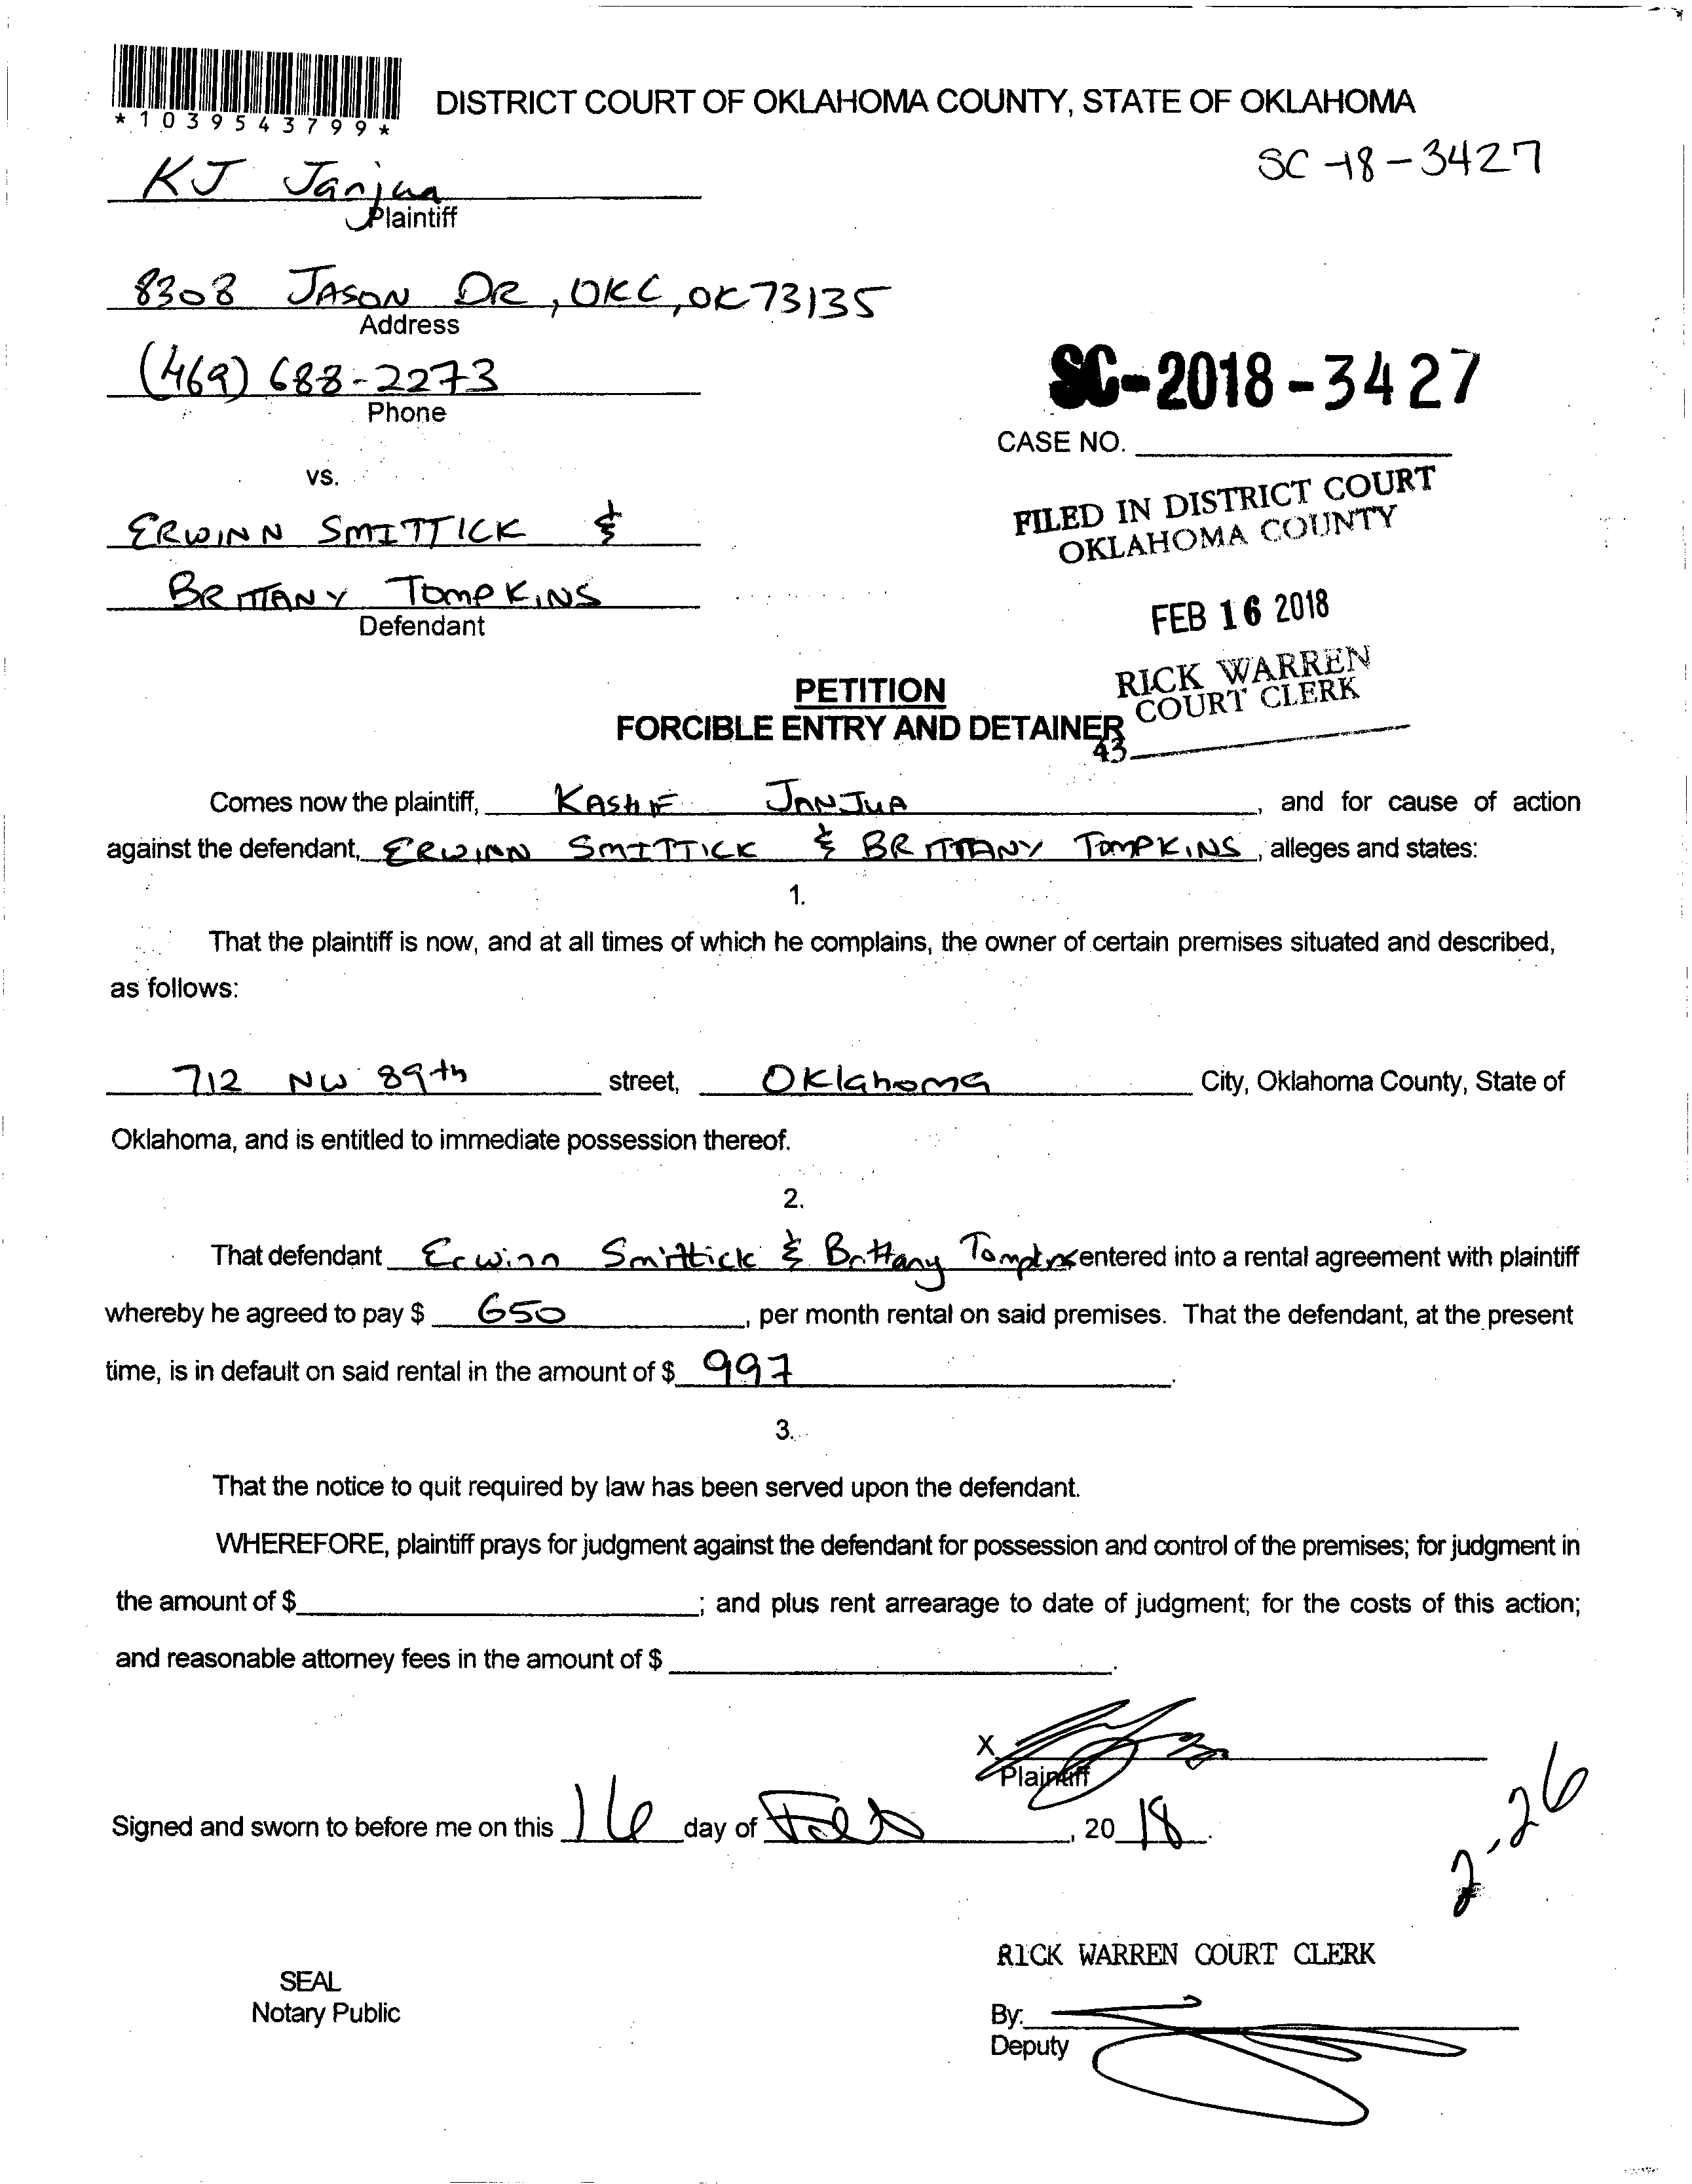 * 1 0 3 9 5 4 3 7 9 9 *
DISTRICT COURT OF OKLAHOMA COUNTY, STATE OF OKLAHOMA
SC-18-3427
KJ Janjua
Plaintiff
8308 JASON DR, OKC, OK 73135
Address
(469) 688-2273
Phone
SC-2018-3427
CASE NO.
vs.
FILED IN DISTRICT COURT
OKLAHOMA COUNTY
ERWINN SMITTICK &
BRITTANY TOMPKINS
Defendant
FEB 16 2018
RICK WARREN
COURT CLERK
43
PETITION
FORCIBLE ENTRY AND DETAINER
Comes now the plaintiff, KASHIF JANJUA, and for cause of action
against the defendant, ERWINN SMITTICK & BRITTANY TOMPKINS, alleges and states:
1.
That the plaintiff is now, and at all times of which he complains, the owner of certain premises situated and described,
as follows:
712 NW 89th street, Oklahoma City, Oklahoma County, State of
Oklahoma, and is entitled to immediate possession thereof.
2.
That defendant Erwinn Smittick & Brittany Tompkins entered into a rental agreement with plaintiff
whereby he agreed to pay $ 650, per month rental on said premises. That the defendant, at the present
time, is in default on said rental in the amount of $ 997.
3.
That the notice to quit required by law has been served upon the defendant.
WHEREFORE, plaintiff prays for judgment against the defendant for possession and control of the premises; for judgment in
the amount of $ ; and plus rent arrearage to date of judgment; for the costs of this action;
and reasonable attorney fees in the amount of $ .
X
Plaintiff
Signed and sworn to before me on this 16 day of Feb, 20 18.
2-26
RICK WARREN COURT CLERK
SEAL
Notary Public
By:
Deputy